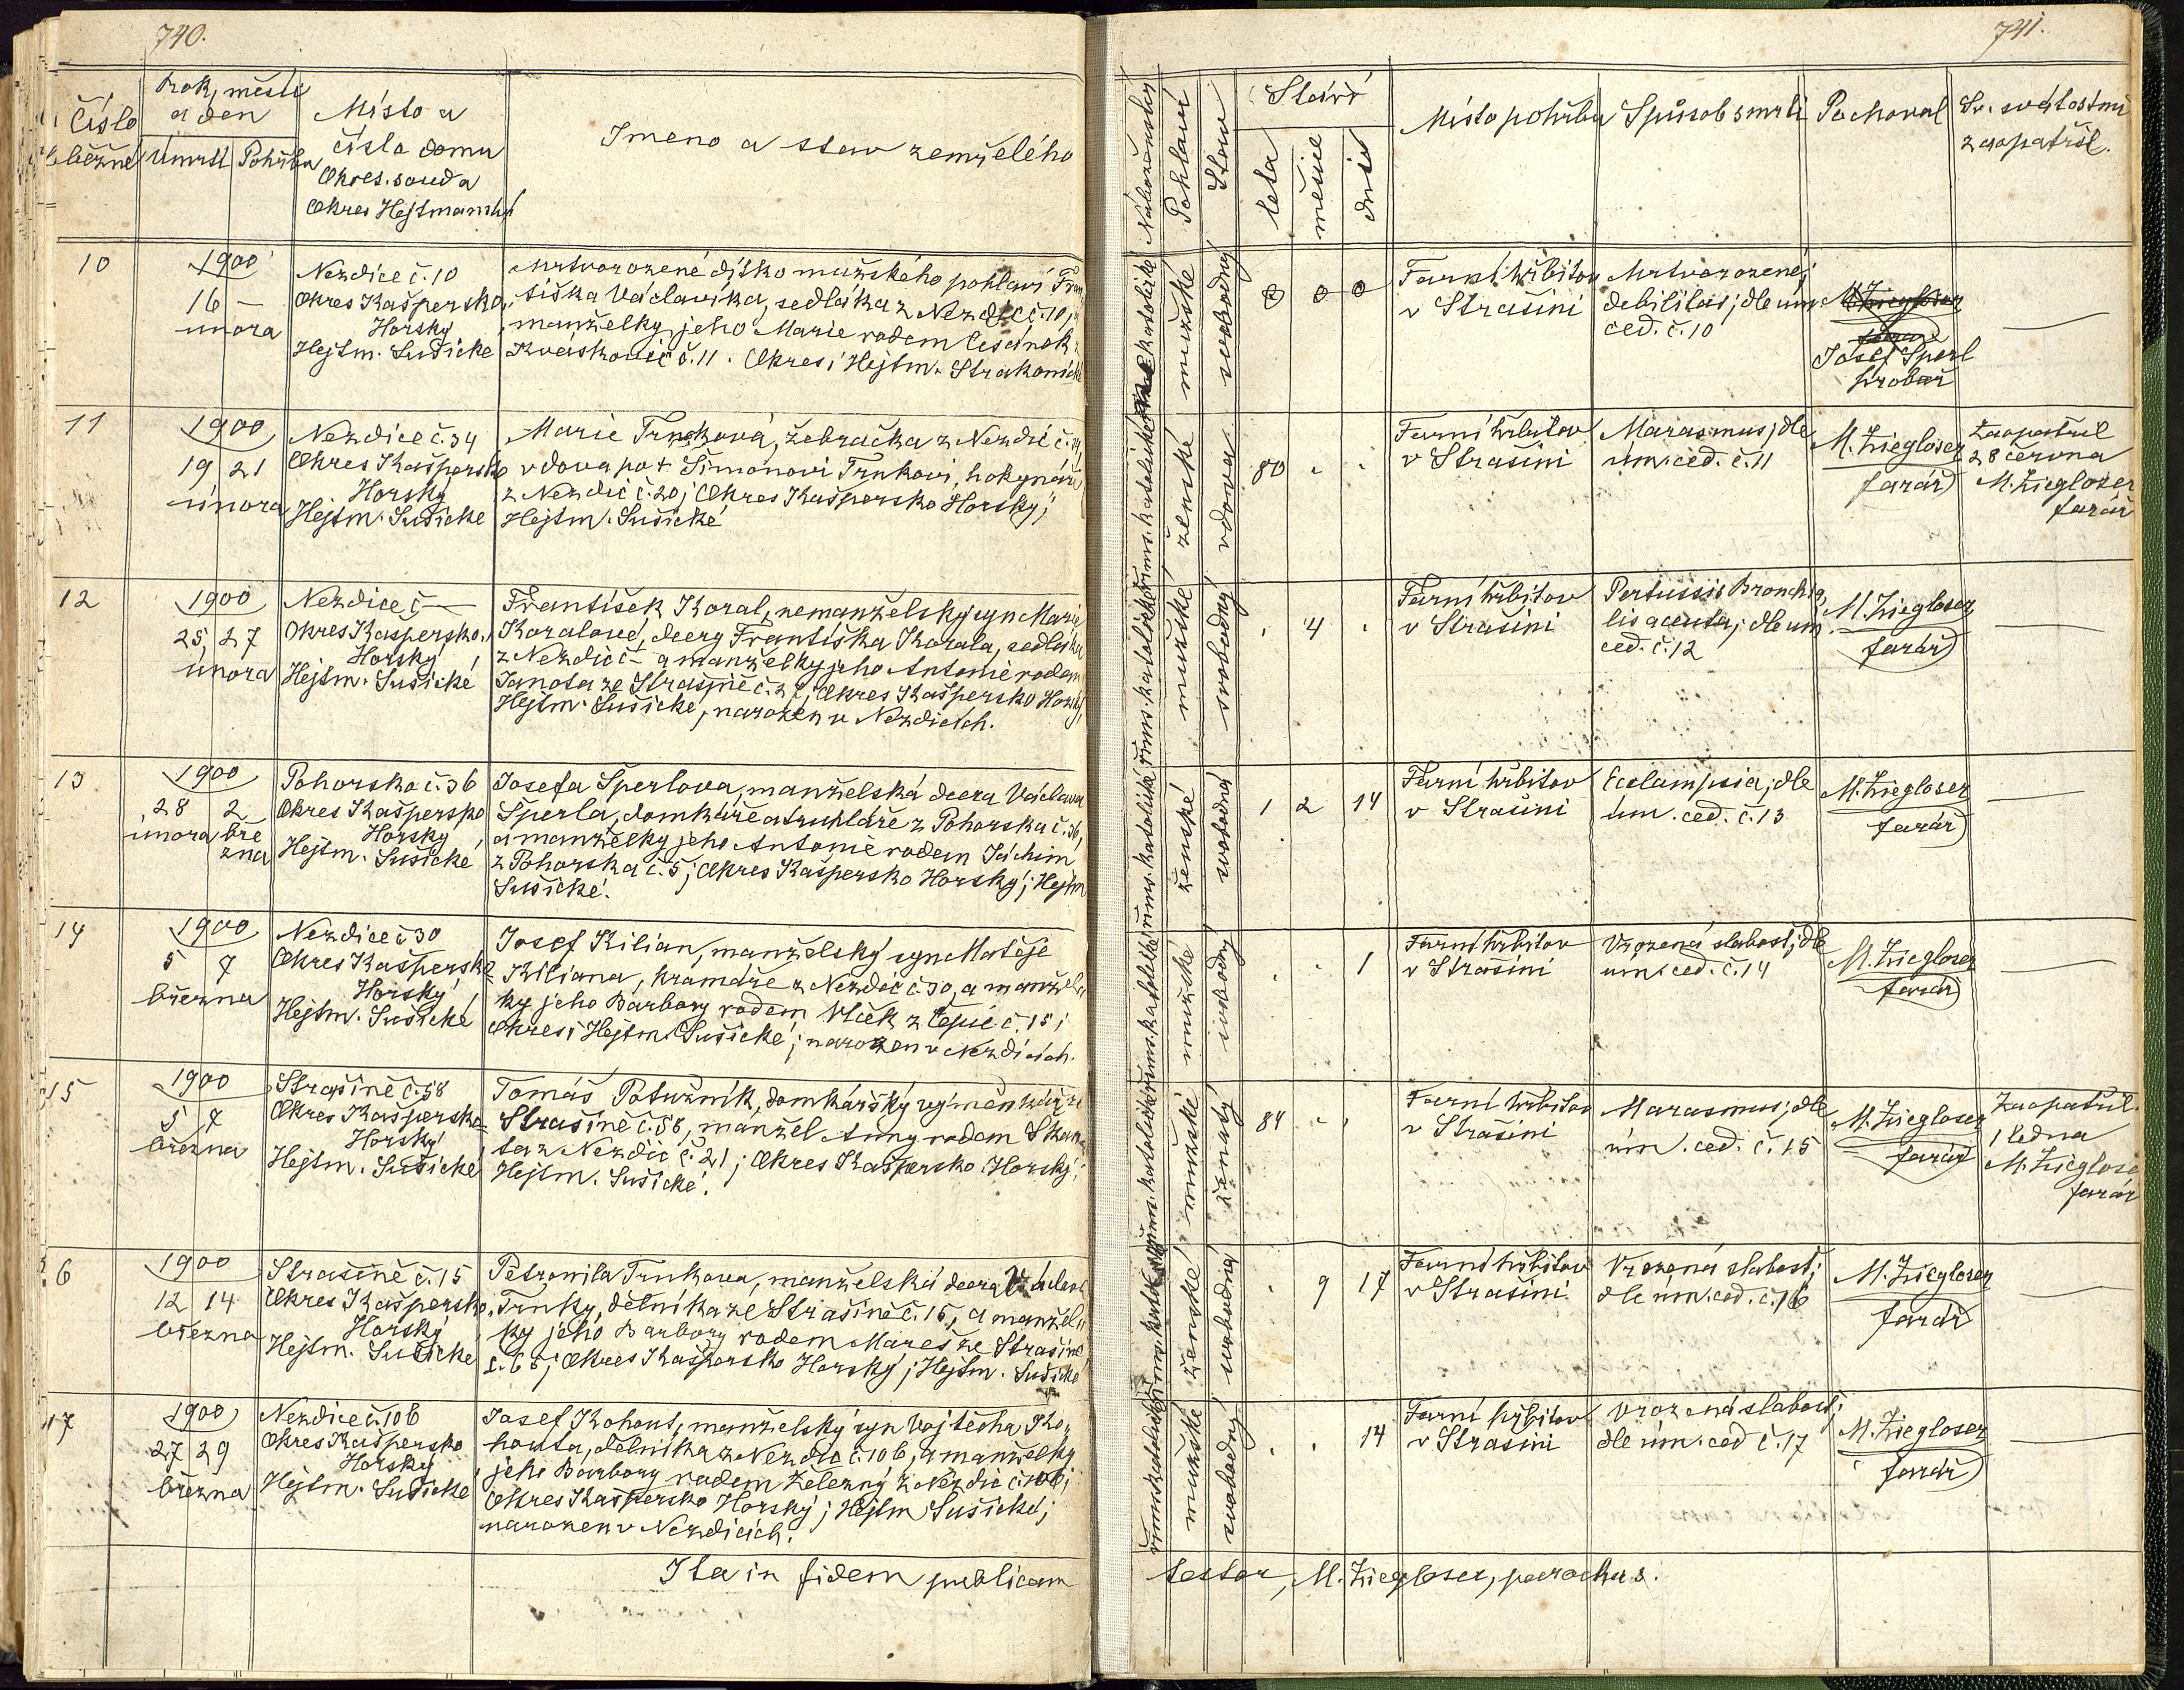 740.
Číslo
běžné
Rok, měsíc
a den
Úmrtí Pohřbu
Místo a
číslo domu
Okres. souda
Okres Hejtmanský
Jmeno a stav zemřelého
10
1900
16 —
února
Nezdice č. 10
Okres Kašpersko
Horský
Hejtm. Sušické
Mrtvorozené dítko mužského pohlaví Fran
tiška Václavíka, sedláka z Nezdic č. 10,
manželky jeho Marie rodem
č. 11. Okres i Hejtm. Strakonické
11
1900
19 21
února
Nezdice č. 34
Okres Kaspersko
Horský
Hejtm. Sušické
Marie Trnková, žebračka z Nezdic č. 34,
vdova po + Šimonovi Trnkovi, hokynáři
z Nezdic č. 20; Okres Kaspersko Horský;
Hejtm. Sušické
12
1900
25 27
února
Nezdice č —
Okres Kaspersko
Horský
Hejtm. Sušické
František Koral, nemanželský syn Marie
Koralové, dcery Františka Korala, sedláka
z Nezdic č — a manželky jeho Antonie rodem
Janota ze Strašině č. 27; Okres Kašpersko Horský,
Hejtm. Sušické, narozen v Nezdicích.
13
1900
28 2
února bře
zna
Pohorsko č. 36
Okres Kašpersko
Horský
Hejtm. Sušické
Josefa Šperlova, manželská dcera Václava
Šperla, domkáře a truhláře z Pohorska č. 36,
a manželky jeho Antonie rodem Jáchim
z Pohorska č. 5; Okres Kašpersko Horský; Hejtm
Sušické.
14
1900
5 7
března
Nezdice č 30
Okres Kaspersko
Horský
Hejtm. Sušické
Josef Kilian, manželský syn Matěje
Kiliana, kramáře z Nezdic č. 30, a manžel
ky jeho Barbory rodem Vlček z Lepic č. 15;
Okres i Hejtm. Sušické; narozen v Nezdicích.
15
1900
5 7
března
Strašině č. 58
Okres Kašpersko
Horský
Hejtm. Sušické
Tomáš Potužník, domkářský výměnkář ze
Strašině č. 58, manžel Anny rodem
z Nezdic č. 21; Okres Kašpersko Horský;
Hejtm. Sušické.
16
1900
12 14
března
Strašině č. 15
Okres Kašpersko
Horský
Hejtm. Sušické
Petronila Trnkova, manželská dcera Václava
Trnky, dělníka ze Strašině č. 15, a manžel
ky jeho Barbory rodem Mareš ze Strašině
č. 65; Okres Kašpersko Horský; Hejtm. Sušické
17
1900
27 29
března
Nezdice č. 106
Okres Kašpersko
Horský
Hejtm. Sušické
Josef Kohout, manželský syn Vojtěcha Ko
houta, dělníka z Nezdic č. 106, a manželky
jeho Barbory rodem Železný z Nezdic č. 106;
Okres Kašpersko Horský; Hejtm Sušické;
narozen v Nezdicích.
Ita in fidem publicam
741.
Náboženství
Pohlaví
Stav
Stáří
leta
měsíce
dnů
Místo pohřbu
Spůsob smrti
Pochoval
Sv. svátostmi
zaopatřil.
říms. katolické
mužské
svobodný
0 0 0
Farní hřbitov
v Strašini
Mrtvorozené;
debilitas; dle úm
ced. č. 10
M. Ziegloser
farář
Josef Šperl
hrobař
říms. katolické
ženské
vdova
80
Farní hřbitov
v Strašini
Marasmus; dle
úm. ced. č. 11
M. Ziegloser
farář
Zaopatřil
28 června
M. Ziegloser
farář
říms. katolické
mužské
svobodný
4
Farní hřbitov
v Strašini
Pertussis Bronchia
lis acuta; dle úm
ced. č. 12
M. Ziegloser
farář
říms. katolické
ženské
svobodná
1 2 14
Farní hřbitov
v Strašini
Eclampsia; dle
úm. ced. č. 13
M. Ziegloser
farář
říms. katolické
mužské
svobodný
1
Farní hřbitov
v Strašini
Vrozená slabost; dle
úm. ced. č. 14
M. Ziegloser
farář
říms. katolické
mužské
ženatý
84
Farní hřbitov
v Strašini
Marasmus; dle
úm. ced. č. 15
M. Ziegloser
farář
Zaopatřil
1 ledna
M. Ziegloser
farář
ženské
svobodná
9 17
Farní hřbitov
v Strašini
Vrozená slabost;
dle úm. ced. č. 16
M. Ziegloser
farář
římskatolické
mužské
svobodný
14
Farní hřbitov
v Strašini
Vrozená slabost;
dle úm. ced č. 17
M. Ziegloser
farář
testor, M. Ziegloser, parochus.